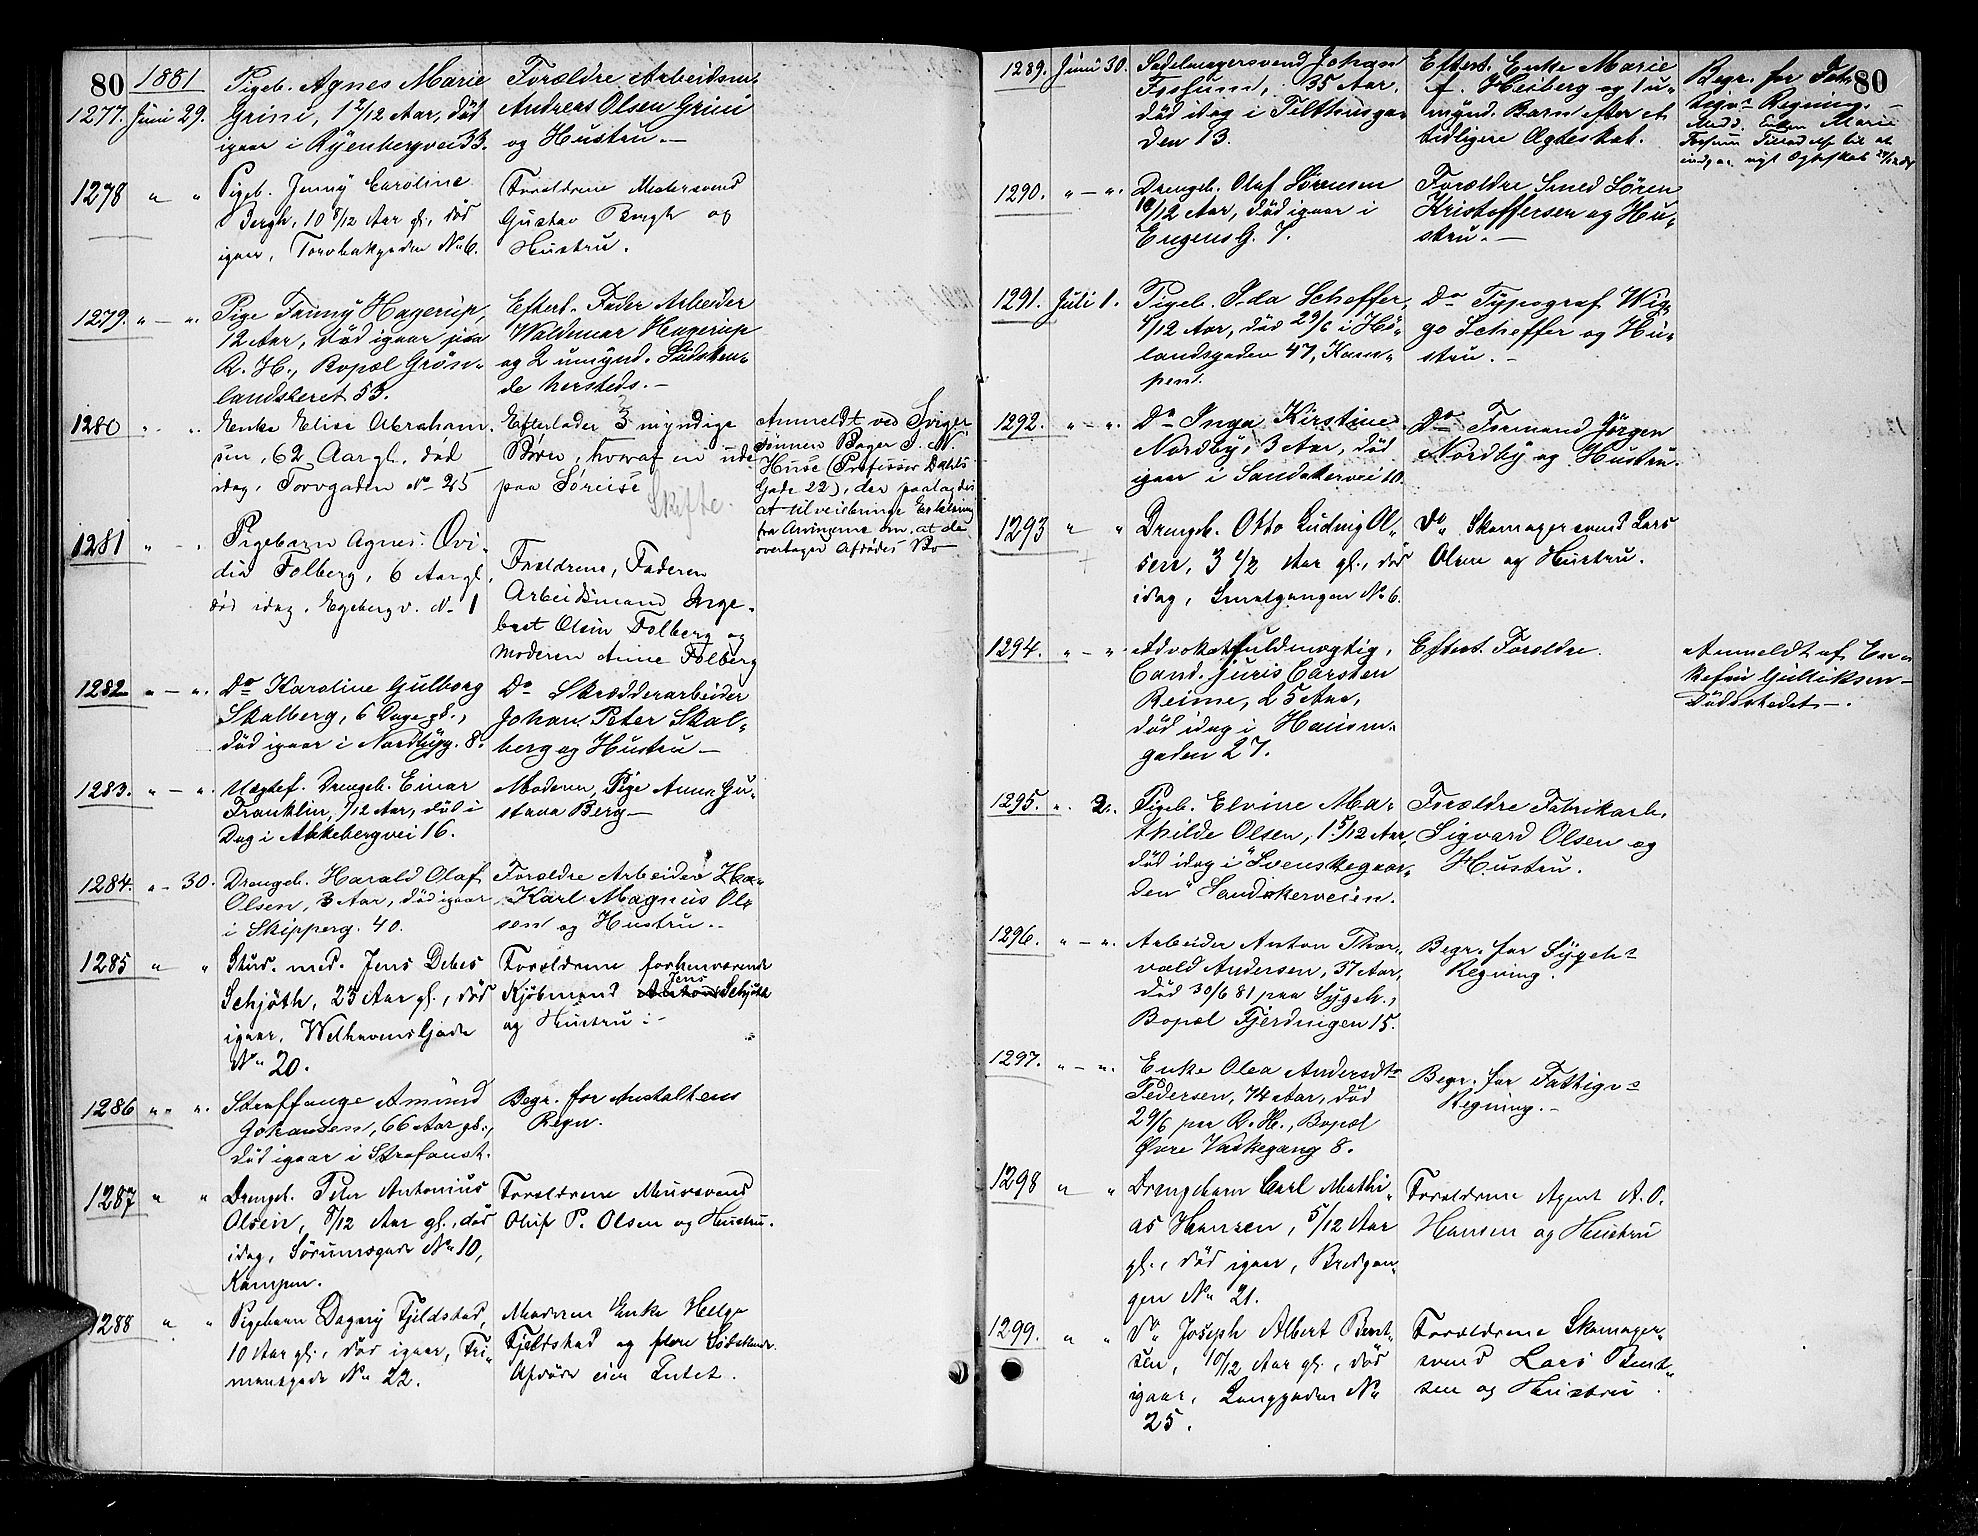 80
1881
1277. Juni 29.
Pigeb. Agnes Marie
Grini, 1 2/12 Aar, død
igaar i Ryenbergvei 33.
Forældre Arbeidsm.
Andreas Olsen Grini
og Hustru.—
1278 " "
Pigeb. Jenny Caroline
Bergh, 10 8/12 Aar gl, død
igaar, Torvbakgaden No 6.
Forældrene Malersvend
Gustav Bergh og
Hustru.
1279. " — ".
Pige Fanny Hagerup,
12 Aar, død igaar paa
R. H., Bopæl Grøn-
landsleret 53.
Efterl. Fader Arbeider
Waldemar Hagerup
og 2 umynd. Sødsken-
de hersteds.—
1280 " "
Enke Elise Abraham-
sen, 62 Aar gl, død
idag, Torvgaden No 25
Efterlader 3 myndige
Børn, hvoraf en ude
paa Søreise
Skifte.
Anmeldt ved Sviger-
sønnen Bager J. N.
Huse (Professor Dahls
Gade 22), der paalagdes
at tilveiebringe Erklæring
fra Arvingerne om, at de
overtager Afdødes Bo
1281 " - "
Pigebarn Agnes Ovi-
dia Folberg, 6 Aar gl,
død idag, Egebergv. No 1
Forældrene, Faderen
Arbeidsmand Inge-
bret Olsen Folberg og
Moderen Anne Folberg
1282 " — ".
Do Karoline Gulborg
Skalberg, 6 Dage gl.,
død igaar i Nordbyg. 8.
Do Skrædderarbeider
Johan Peter Skal-
berg og Hustru —
1283. " — ".
Uægtef. Drengeb. Einar
Franklin, 1/12 Aar, død i
Dag i Akkebergvei 16.
Moderen, Pige Anna Gu-
stava Berg —
1284. " - 30.
Drengeb. Harald Olaf
Olsen, 3 Aar, død igaar
i Skipperg. 40.
Forældre Arbeider
Karl Magnus Ol-
sen og Hustru..
1285 " "
Stud. med. Jens Debes
Schjøth, 23 Aar gl., død
igaar, Welhavens Gade
No 20.
Forældrene forhenværende
Kjøbmand Jens Schjøth
og Hustru :-
1286 " " ".
Straffange Amund
Johansen, 66 Aar gl.,
død igaar i Strafanst.
Begr. for Anstaltens
Regn.
1287 " "
Drengeb. Peter Antonius
Olsen, 8/12 Aar gl., død
idag, Sørumsgade No 10,
Kampen.
Forældrene Mursvend
Oluf P. Olsen og Hustru.
1288 " "
Pigebarn Dagny Fjeldstad,
10 Aar gl., død igaar, Fri-
mansgade No 22.
Moderen Enke Helga
Fjeldstad og flere Sødskende.
Afdøde eier Intet.
80
1289. Juni 30.
Sadelmagersvend Johan
Fossum, 35 Aar,
død idag i Tilthusga-
den 13.
Efterl. Enke Marie
f. Heiberg og 1 u-
mynd. Barn efter et
tidligere Ægteskab.
Begr. for Fat-
tigvs Regning.—
Medd. Enken Marie
Fossum Tilladelse til at
indgaa nyt Ægteskab
1290. " — ".
Drengeb. Olaf Sørensen
10/12 Aar, død igaar i
Eugens G. 7.
Forældre Smed Søren
Kristoffersen og Hu-
stru.—
1291. Juli 1.
Pigeb. Ida Scheffer,
4/12 Aar, død 29/6 i Hø-
landsgaden 47, Kam-
pen.
Do Typograf Wig-
go Scheffer og Hu-
stru.-
1292. " — ".
Do Inga Kirstine
Nordby, 3 Aar, død
igaar i Sandakervei 10.
Do Formand Jørgen
Nordby og Hustru.
1293 " "
Drengeb. Otto Ludvig Ol-
sen, 3 1/2 Aar gl., død
idag, Smalgangen No 6.
Do Skomagersvend Lars
Olsen og Hustru.
1294. " — ".
Advokatfuldmægtig,
Cand. juris Carsten
Reime, 25 Aar,
død idag i Hausm.-
gaden 27.
Efterl. Forældre.
Anmeldt af En-
kefru Gulliksen—
Dødsstedet—.
1295. ". 2.
Pigeb. Elvine Ma-
thilde Olsen, 1 5/12 Aar,
død idag i "Svenskegaar-
den" Sandakerveien.
Forældre Fabrikarb.
Sigvard Olsen og
Hustru.
1296. " — ".
Arbeider Anton Thor-
vald Andersen, 37 Aar,
død 30/6 81 paa Sygeh.,
Bopæl Fjerdingen 15.
Begr. for Sygehs
Regning.
1297. " — ".
Enke Olea Andersdtr
Pedersen, 74 Aar, død
29/6 paa R. H., Bopæl
Øvre Vaskegang 8.
Begr. for Fattigvs
Regning.—
1298 " "
Drengebarn Carl Mathi-
as Hansen, 5/12 Aar
gl., død igaar, Bredgan-
gen No 21.
Forældrene Agent A. O.
Hansen og Hustru
1299. " "
Do Joseph Albert Bent-
sen, 10/12 Aar gl., død
igaar, Langgaden No
25.
Forældrene Skomager-
svend Lars Bent-
sen og Hustru.